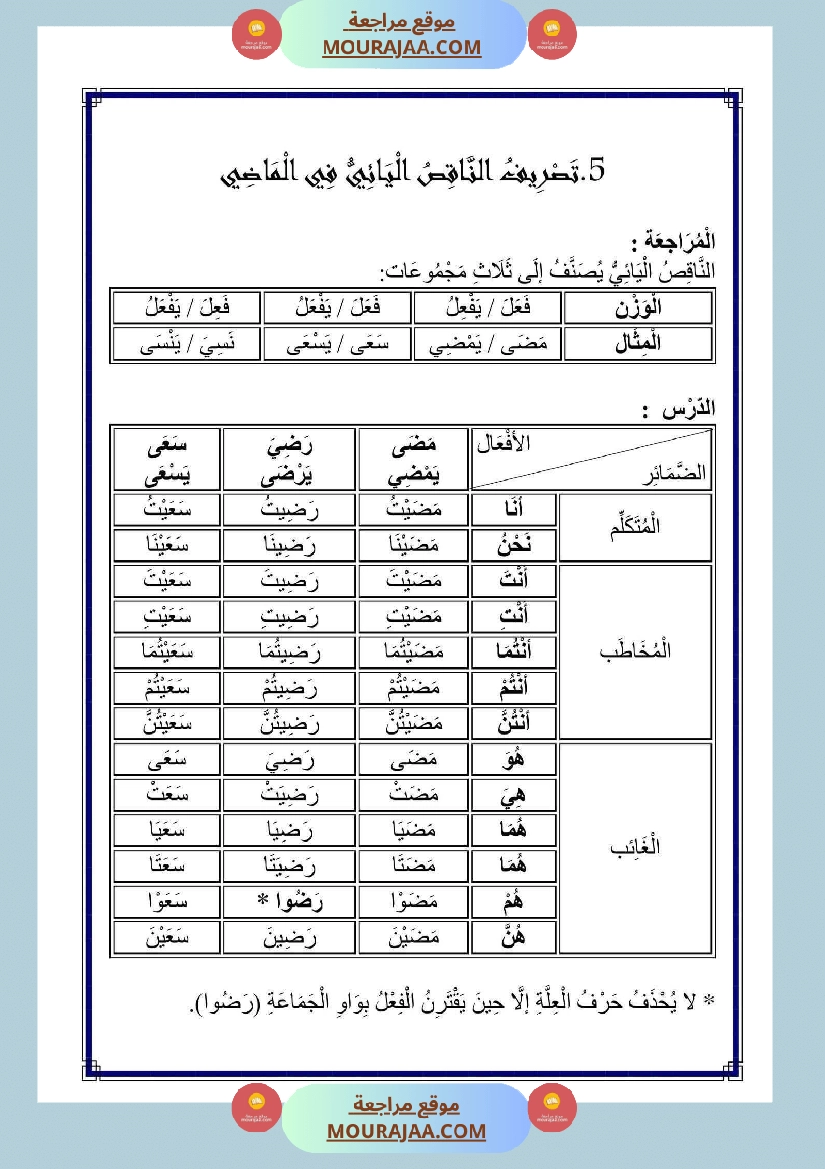 موقع مراجعة
MOURAJAA.COM
5.تَصْرِيفُ النَّاقِصُ الْيَائِيُّ فِي الْمَاضِي
الْمُرَاجعَة :
النَّاقِصُ الْيَائِيُّ يُصَنَّفُ إلَى ثَلَاثِ مَجْمُوعَات:
الْوَزْن فَعَلَ / يَفْعِلُ فَعَلَ / يَفْعَلُ فَعِلَ / يَفْعَلُ
الْمِثْال مَضَى / يَمْضِي سَعَى / يَسْعَى نَسِيَ / يَنْسَى
الدّرْس :
الأفْعَال مَضَى رَضِيَ سَعَى
الضَّمَائِر يَمْضِي يَرْضَى يَسْعَى
الْمُتَكَلِّم أنَا مَضَيْتُ رَضِيتُ سَعَيْتُ
نَحْنُ مَضَيْنَا رَضِينَا سَعَيْنَا
الْمُخَاطَب أنْتَ مَضَيْتَ رَضِيتَ سَعَيْتَ
أنْتِ مَضَيْتِ رَضِيتِ سَعَيْتِ
أنْتُمَا مَضَيْتُمَا رَضِيتُمَا سَعَيْتُمَا
أنْتُمْ مَضَيْتُمْ رَضِيتُمْ سَعَيْتُمْ
أنْتُنَّ مَضَيْتُنَّ رَضِيتُنَّ سَعَيْتُنَّ
الْغَائِب هُوَ مَضَى رَضِيَ سَعَى
هِيَ مَضَتْ رَضِيَتْ سَعَتْ
هُمَا مَضَيَا رَضِيَا سَعَيَا
هُمَا مَضَتَا رَضِيَتَا سَعَتَا
هُمْ مَضَوْا رَضُوا * سَعَوْا
هُنَّ مَضَيْنَ رَضِينَ سَعَيْنَ
* لا يُحْذَفُ حَرْفُ الْعِلَّةِ إلَّا حِينَ يَقْتَرِنُ الْفِعْلُ بِوَاوِ الْجَمَاعَةِ (رَضُوا).
موقع مراجعة
MOURAJAA.COM